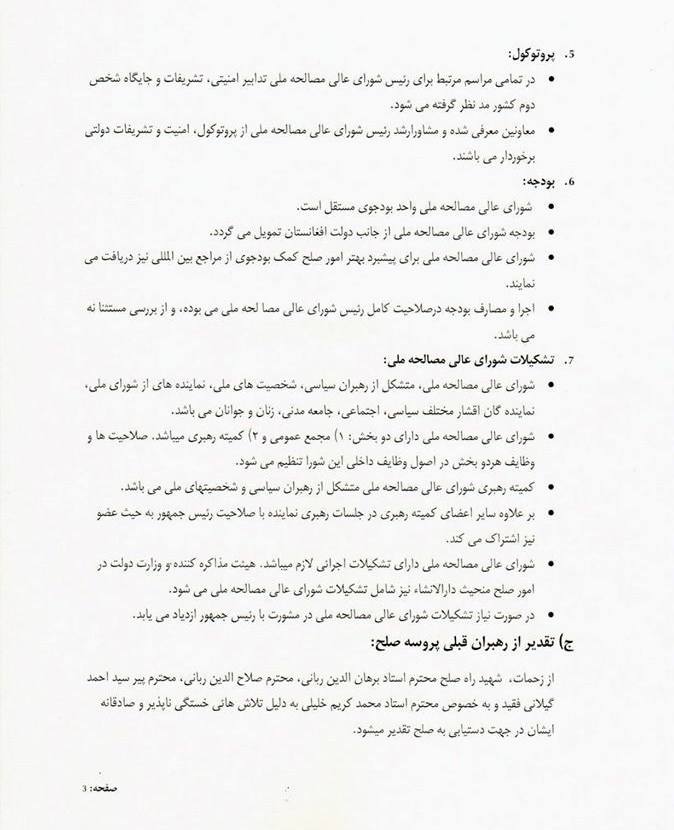 5. پروتوکول:
• در تمامی مراسم مرتبط برای رئیس شورای عالی مصالحه ملی تدابیر امنیتی، تشریفات و جایگاه شخص
دوم کشور مد نظر گرفته می شود.
• معاونین معرفی شده و مشاورارشد رئیس شورای عالی مصالحه ملی از پروتوکول، امنیت و تشریفات دولتی
برخوردار می باشند.
6. بودجه:
• شورای عالی مصالحه ملی واحد بودجوی مستقل است.
• بودجه شورای عالی مصالحه ملی از جانب دولت افغانستان تمویل می گردد.
• شورای عالی مصالحه ملی برای پیشبرد بهتر امور صلح کمک بودجوی از مراجع بین المللی نیز دریافت می
نمایند.
• اجرا و مصارف بودجه درصلاحیت کامل رئیس شورای عالی مصا لحه ملی می بوده، و از بررسی مستثنا نه
می باشد.
7. تشکیلات شورای عالی مصالحه ملی:
• شورای عالی مصالحه ملی، متشکل از رهبران سیاسی، شخصیت های ملی، نماینده های از شورای ملی،
نماینده گان اقشار مختلف سیاسی، اجتماعی، جامعه مدنی، زنان و جوانان می باشد.
• شورای عالی مصالحه ملی دارای دو بخش: ۱) مجمع عمومی و ۲) کمیته رهبری میباشد. صلاحیت ها و
وظایف هردو بخش در اصول وظایف داخلی این شورا تنظیم می شود.
• کمیته رهبری شورای عالی مصالحه ملی متشکل از رهبران سیاسی و شخصیتهای ملی می باشد.
• بر علاوه سایر اعضای کمیته رهبری در جلسات رهبری نماینده با صلاحیت رئیس جمهور به حیث عضو
نیز اشتراک می کند.
• شورای عالی مصالحه ملی دارای تشکیلات اجرائی لازم میباشد. هیئت مذاکره کننده و وزارت دولت در
امور صلح منحیث دارالانشاء نیز شامل تشکیلات شورای عالی مصالحه ملی می شود.
• در صورت نیاز تشکیلات شورای عالی مصالحه ملی در مشورت با رئیس جمهور ازدیاد می یابد.
ج) تقدیر از رهبران قبلی پروسه صلح:
از زحمات، شهید راه صلح محترم استاد برهان الدین ربانی، محترم صلاح الدین ربانی، محترم پیر سید احمد
گیلانی فقید و به خصوص محترم استاد محمد کریم خلیلی به دلیل تلاش هائی خستگی ناپذیر و صادقانه
ایشان در جهت دستیابی به صلح تقدیر میشود.
صفحه: 3